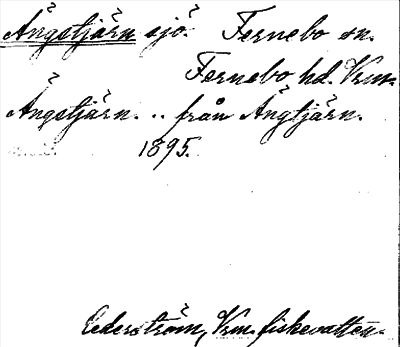 Ångstjärn sjö. Fernebo sn.
Fernebo hd. Vrml.
Ångstjärn. .. från Ångtjärn.
1895.
Cederström, Vrm. fiskevatten.